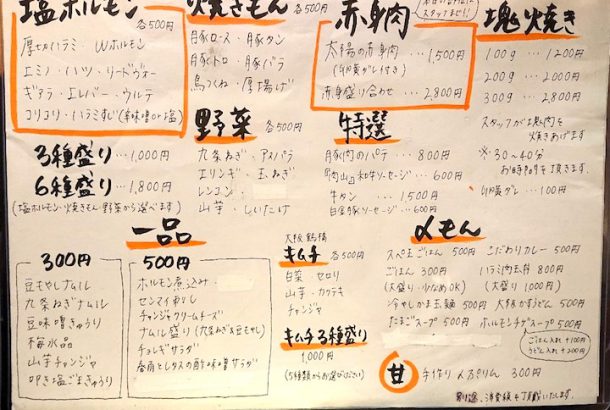 塩ホルモン 各500円
厚切ハラミ・Wホルモン
エミノ・ハツ・リードヴォー
ギアラ・エレバー・ウルテ
コリコリ・ハラミすじ(辛味噌or塩)
焼きもん 各500円
豚ロース・豚タン
豚トロ・豚バラ
鳥つくね・厚揚げ
赤身肉
太陽の赤身肉 …1500円
(卵黄ダレ付き)
赤身盛り合わせ …2,800円
塊焼き
100g … 1200円
200g … 2000円
300g … 2800円
スタッフが塊肉を
焼きあげます
※30~40分
お時間を頂きます。
卵黄ダレ …100円
3種盛り…1,000円
6種盛り…1,800円
(塩ホルモン・焼きもん・野菜から選べます)
野菜 各500円
九条ねぎ・アスパラ
エリンギ・玉ねぎ
レンコン
山芋・しいたけ
特選
豚肉のパテ …800円
和牛ソーセージ …600円
牛タン … 1500円
白金豚ソーセージ …600円
一品
300円
豆もやしナムル
九条ねぎナムル
豆味噌きゅうり
梅水晶
山芋チャンジャ
叩き塩ごまきゅうり
500円
ホルモン煮込み
センマイ刺し
チャンジャクリームチーズ
ナムル盛り(九条ねぎ&豆もやし)
チョレギサラダ
春菊とレタスの酢味噌サラダ
大阪鶴橋
キムチ 各500円
白菜・セロリ
山芋・カクテキ
チャンジャ
キムチ3種盛り
1,000円
(5種類からお選びください)
〆もん
スペ玉ごはん 500円
ごはん 300円
(大盛り・少なめOK)
冷やしかま玉麺 500円
たまごスープ 500円
こだわりカレー 500円
ハラミ肉玉丼 800円
(大盛り 1000円)
大阪かすうどん 500円
ホルモンチゲスープ 500円
ごはん入れ+100円
うどん入れ+200円
甘 手作り 300円